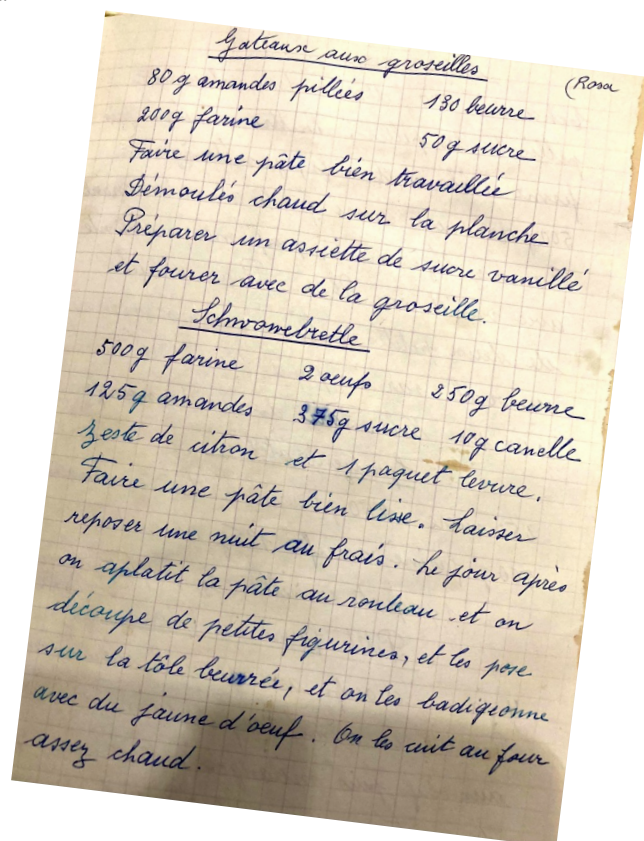 Gateaux aux groseilles
(Rosa
80g amandes pillées 130 beurre
200g farine 50g sucre
Faire une pâte bien travaillée
Démoulés chaud sur la planche
Préparer un assiette de sucre vanillé
et fourer avec de la groseille.
Schwowebretle
500g farine 2 oeufs 250g beurre
125g amandes 375g sucre 10g canelle
Zeste de citron et 1 paquet levure.
Faire une pâte bien lisse. Laisser
reposer une nuit au frais. Le jour après
on aplatit la pâte au rouleau et on
découpe de petites figurines, et les pose
sur la tôle beurrée, et on les badigeonne
avec du jaune d'oeuf. On les cuit au four
assez chaud.